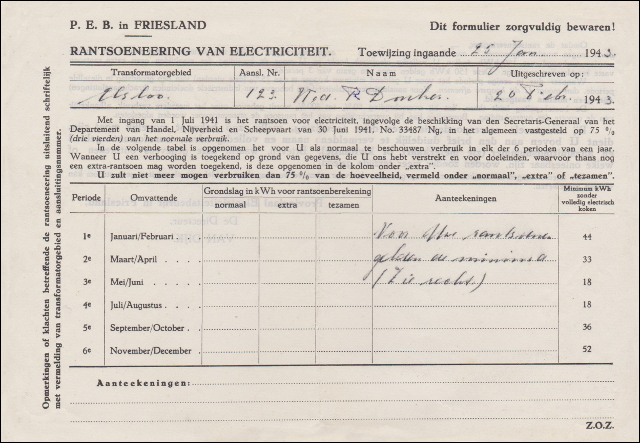 P. E. B. in FRIESLAND
Dit formulier zorgvuldig bewaren!
RANTSOENEERING VAN ELECTRICITEIT. Toewijzing ingaande 25 Jan. 1943.
Transformatorgebied Aansl. Nr. Naam Uitgeschreven op:
Elsloo. 123 Wed. R 20 Febr. 1943.
Met ingang van 1 Juli 1941 is het rantsoen voor electriciteit, ingevolge de beschikking van den Secretaris-Generaal van het
Departement van Handel, Nijverheid en Scheepvaart van 30 Juni 1941, No. 33487 Ng, in het algemeen vastgesteld op 75 %
(drie vierden) van het normale verbruik.
In de volgende tabel is opgenomen het voor U als normaal te beschouwen verbruik in elk der 6 perioden van een jaar.
Wanneer U een verhooging is toegekend op grond van gegevens, die U ons hebt verstrekt en voor doeleinden, waarvoor thans nog
een extra-rantsoen mag worden toegekend, is deze opgenomen in de kolom onder „extra".
U zult niet meer mogen verbruiken dan 75 % van de hoeveelheid, vermeld onder „normaal", „extra" of "tezamen".
Periode Omvattende Grondslag in kWh voor rantsoenberekening Aanteekeningen Minimum kWh zonder volledig electrisch koken
normaal extra tezamen
1e Januari/Februari Voor elke rantsoenen 44
2e Maart/April gelden de minima 33
3e Mei/Juni (Zie rechts.) 18
4e Juli/Augustus 18
5e September/October 36
6e November/December 52
Aanteekeningen:
Z.O.Z.
Opmerkingen of klachten betreffende de rantsoeneering uitsluitend schriftelijk
met vermelding van transformatorgebied en aansluitingsnummer.